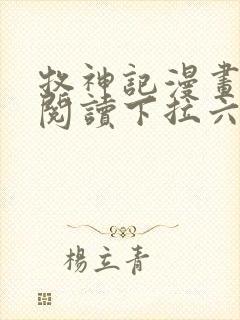 牧神記漫畫
閱讀下拉六
楊立青